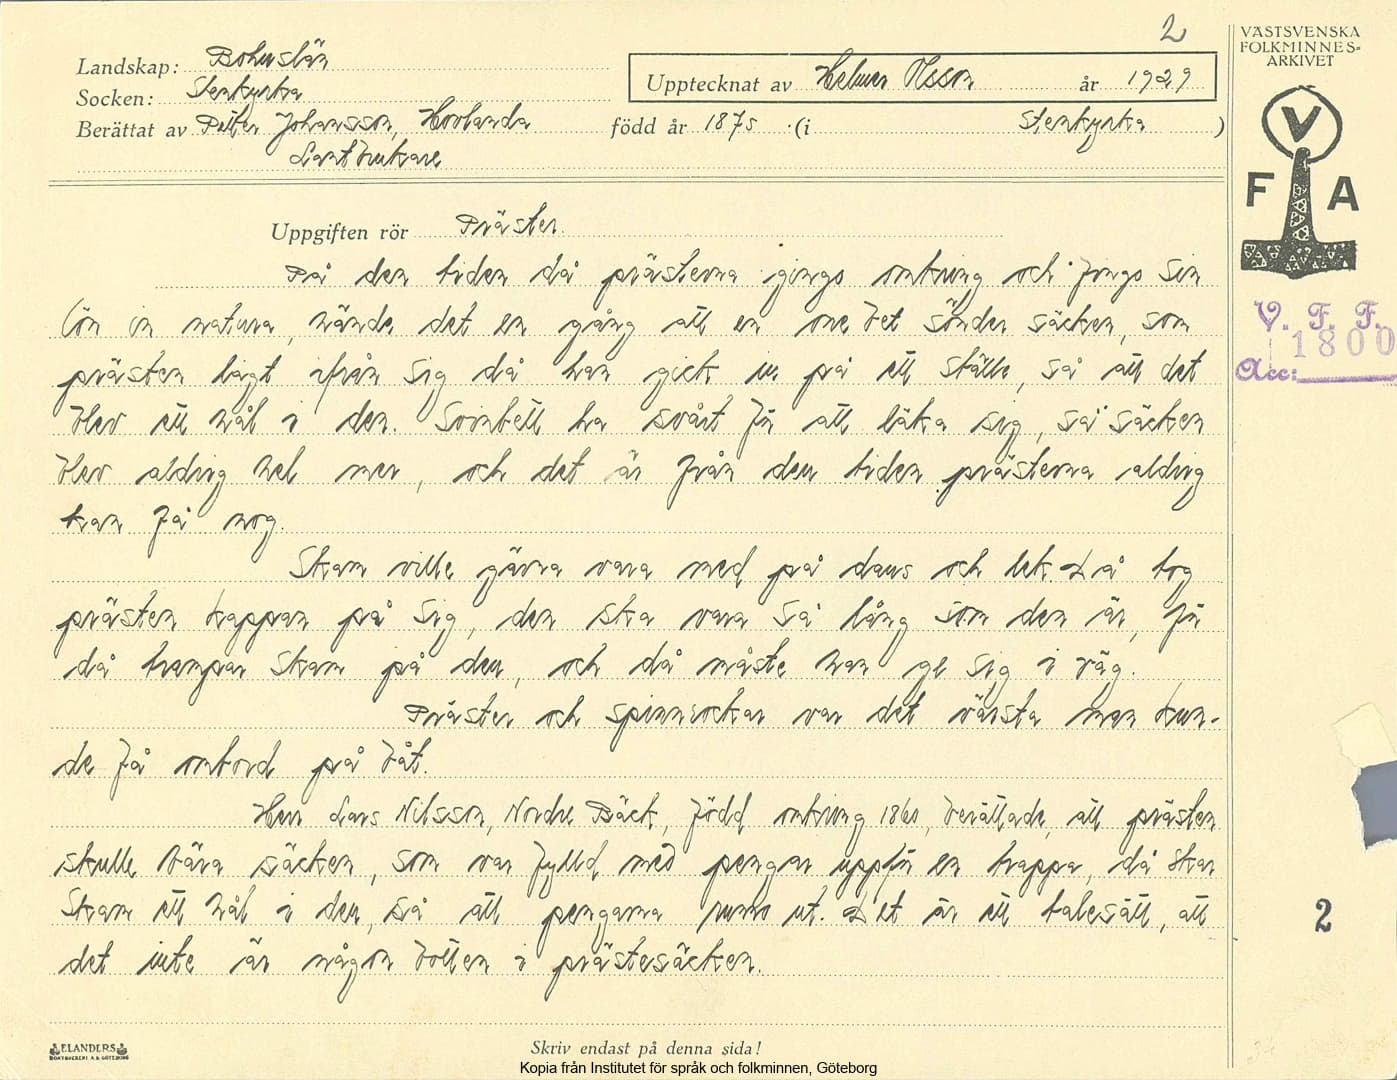 2
VÄSTSVENSKA
FOLKMINNES-
ARKIVET
Landskap: Bohuslän
Upptecknat av Helmer Olsson år 1929
Socken: Stenkyrka
Berättat av Peter Johansson, Hovlanda född år 1875 (i Stenkyrka)
Lantbrukare
V
F A
Uppgiften rör Präster.
På den tiden då prästerna gingo omkring och fingo sin
lön in natura, hände det en gång att en bet sönder säcken, som
prästen lagt ifrån sig då han gick in på ett ställe, så att det
blev ett hål i den. Svinbett ha svårt för att läka sig, så säcken
blev aldrig hel mer, och det är från den tiden prästerna aldrig
kan få nog.
Skam ville gärna vara med på dans och lek. Då tog
prästen kappan på sig, den ska vara så lång som den är, för
då trampar Skam på den, och då måste han ge sig i väg.
Präster och spinnrockar var det värsta man kun-
de få ombord på båt.
Herr Lars Nilsson, Nordre Bäck, född omkring 1860, berättade, att prästen
skulle bära säcken, som var fylld med pengar uppför en trappa, då skar
Skam ett hål i den, så att pengarna runno ut. Det är ett talesätt, att
det inte är någon botten i prästesäcken.
V. F. F.
1800
Acc:
2
ELANDERS
BOKTRYCKERI A.B. GÖTEBORG
Skriv endast på denna sida!
Kopia från Institutet för språk och folkminnen, Göteborg